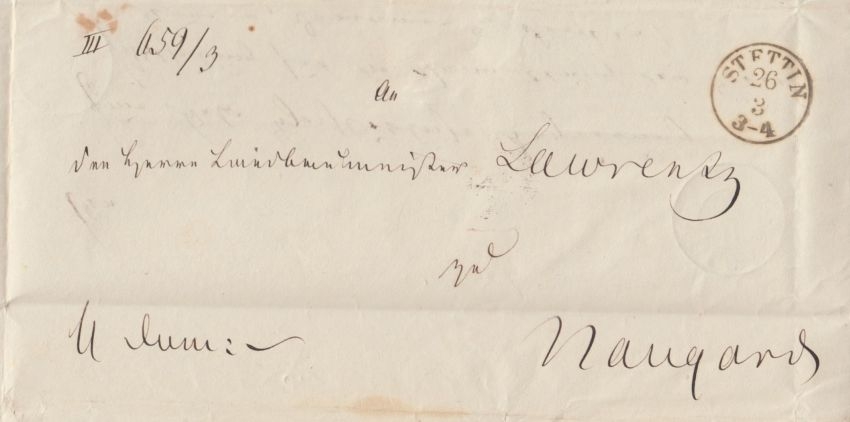 III 659/3
STETTIN
26
3
3-4
An
den Herrn Landbaumeister Lawrentz
zu
Naugard